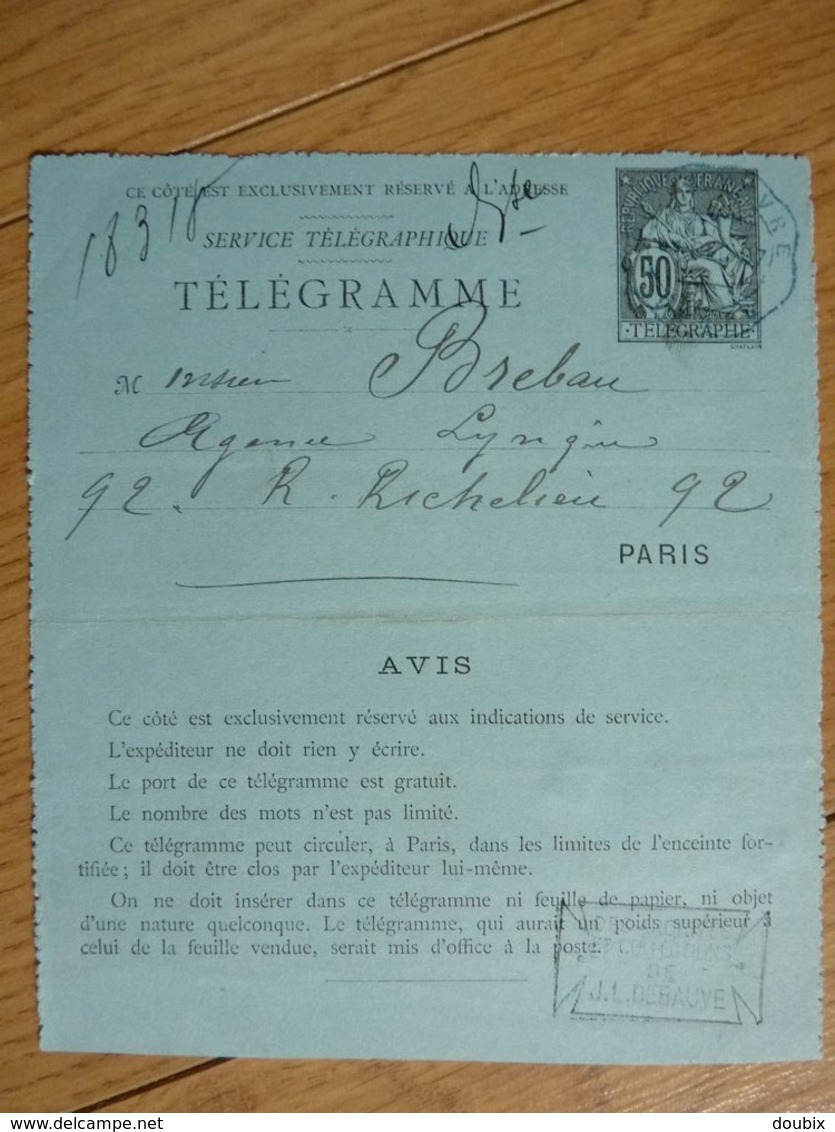 CE CÔTÉ EST EXCLUSIVEMENT RÉSERVÉ A L'ADRESSE
18318
SERVICE TÉLÉGRAPHIQUE
TÉLÉGRAMME
RÉPUBLIQUE FRANÇAISE
50
·TÉLÉGRAPHE·
CHAPLAIN
M onsieur Brebau
Agence
92. R. Richelieu 92
PARIS
AVIS
Ce côté est exclusivement réservé aux indications de service.
L'expéditeur ne doit rien y écrire.
Le port de ce télégramme est gratuit.
Le nombre des mots n'est pas limité.
Ce télégramme peut circuler, à Paris, dans les limites de l'enceinte for-
tifiée; il doit être clos par l'expéditeur lui-même.
On ne doit insérer dans ce télégramme ni feuille de papier, ni objet
d'une nature quelconque. Le télégramme, qui aurait un poids supérieur à
celui de la feuille vendue, serait mis d'office à la poste.
COLLECTIONS
DE
J.L. DEBAUVE
delcampe.net
doubix